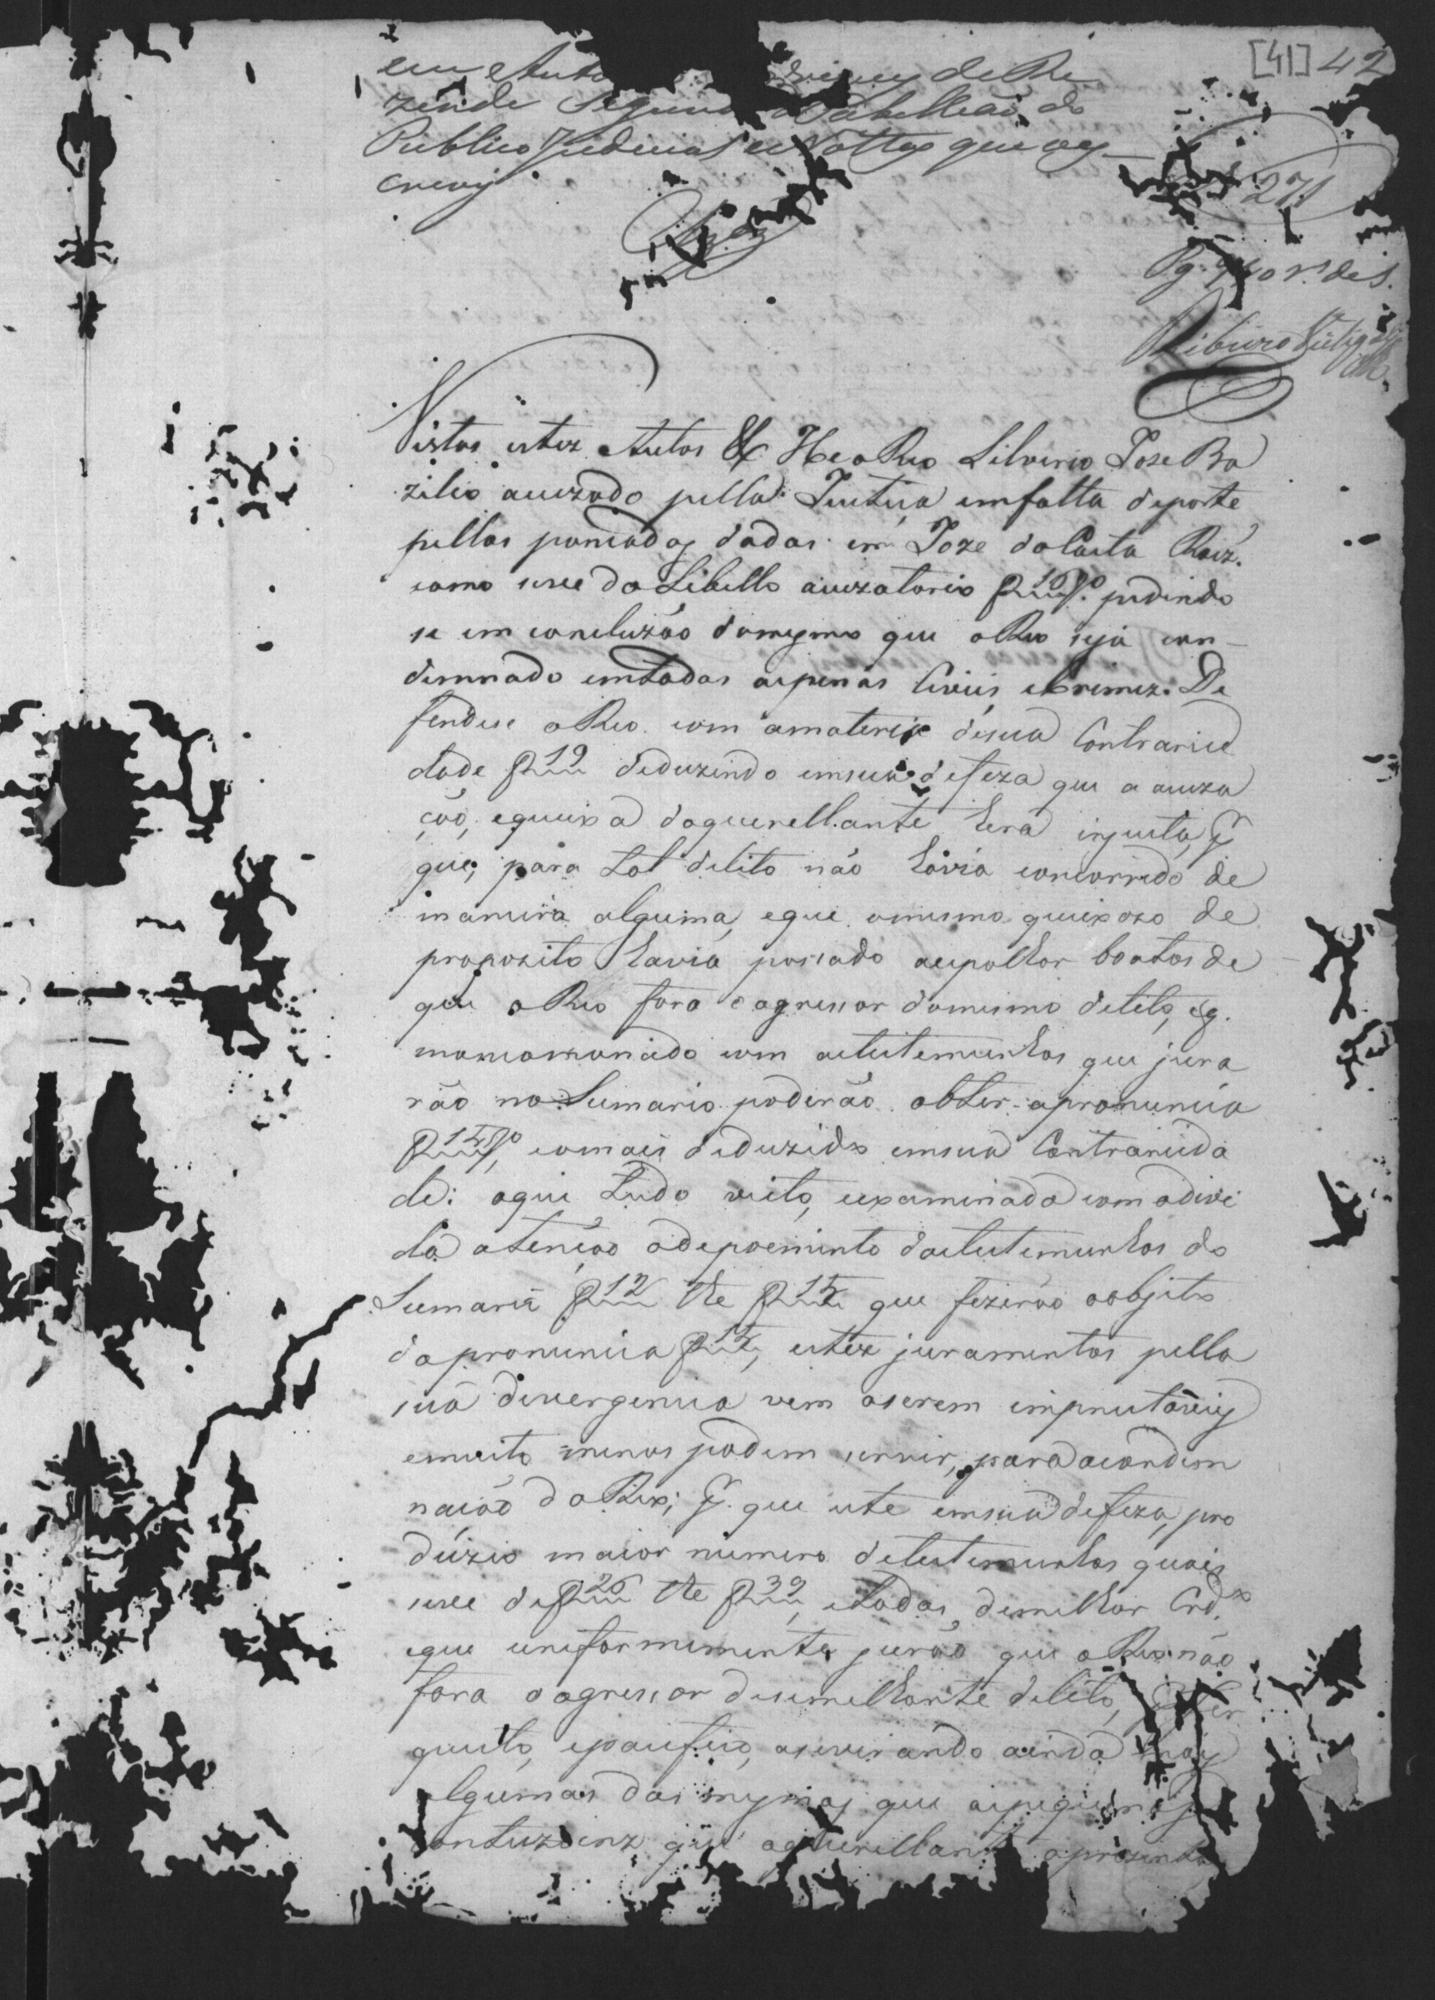 [41] 42
em Anto de Re
zende Segundo Tabelleaõ do
Publico Judicial e Nottas que ocs
crevy
271
Pg.
Vistos estes Autos & He o Reo Silverio Joze Ba
zilio acuzado pella Justiça emfalta departe
pellas pancadas dadas em Joze da Costa Roiz.
como sevê do Libello acuzatorio f 16 vo pedindo
se em concluzão domesmo que o Reo seja con
demnado emtodas aspenas Civeis, eCrimez. De
fendese o Reo com amateria desua Contrarie
dade f 19 deduzindo emsua defeza que a acuza
çaõ, equeixa doquerellante hera injusta, p.
que, para tal delito não havia concorrido de
maneira alguma, eque omesmo queixozo de
propozito havia passado aespalhar boatos de
que o Reo fora o agressor domesmo delito, eq.
mancomonado com astestemunhas que jura
rão no Sumario poderão obter apronuncia
f 15 vo, comais deduzido emsua Contrarieda
de: oque tudo visto, eexaminado com adivi
da atenção odepoemento dastestemunhas do
Sumario f 12 the f 15 que fizerão oobjeto
dapronuncia f 15, estes juramentos pella
sua divergencia vem aserem imprestaveis
emuito menos podem servir, para acondem
nação do Reo; p. que este emsua defeza, pro
duzio maior numero detestemunhas quais
sevê de f 26 the f 39, etodas demilhor Crd.
eque uniformemente jurão que o Reo não
fora o agressor desemelhante delito,
quieto, epacifico, aseverando ainda mais
algumas das mesmas que aspequenas
contuzoenz que oquerellante aprezenta